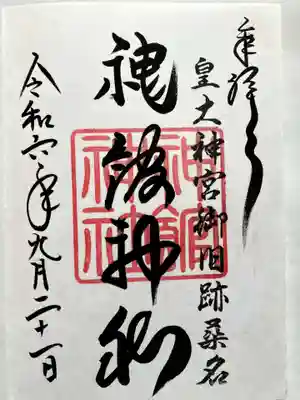 奉拝
皇大神宮御旧跡桑名
神館神社
令和六年九月二十一日